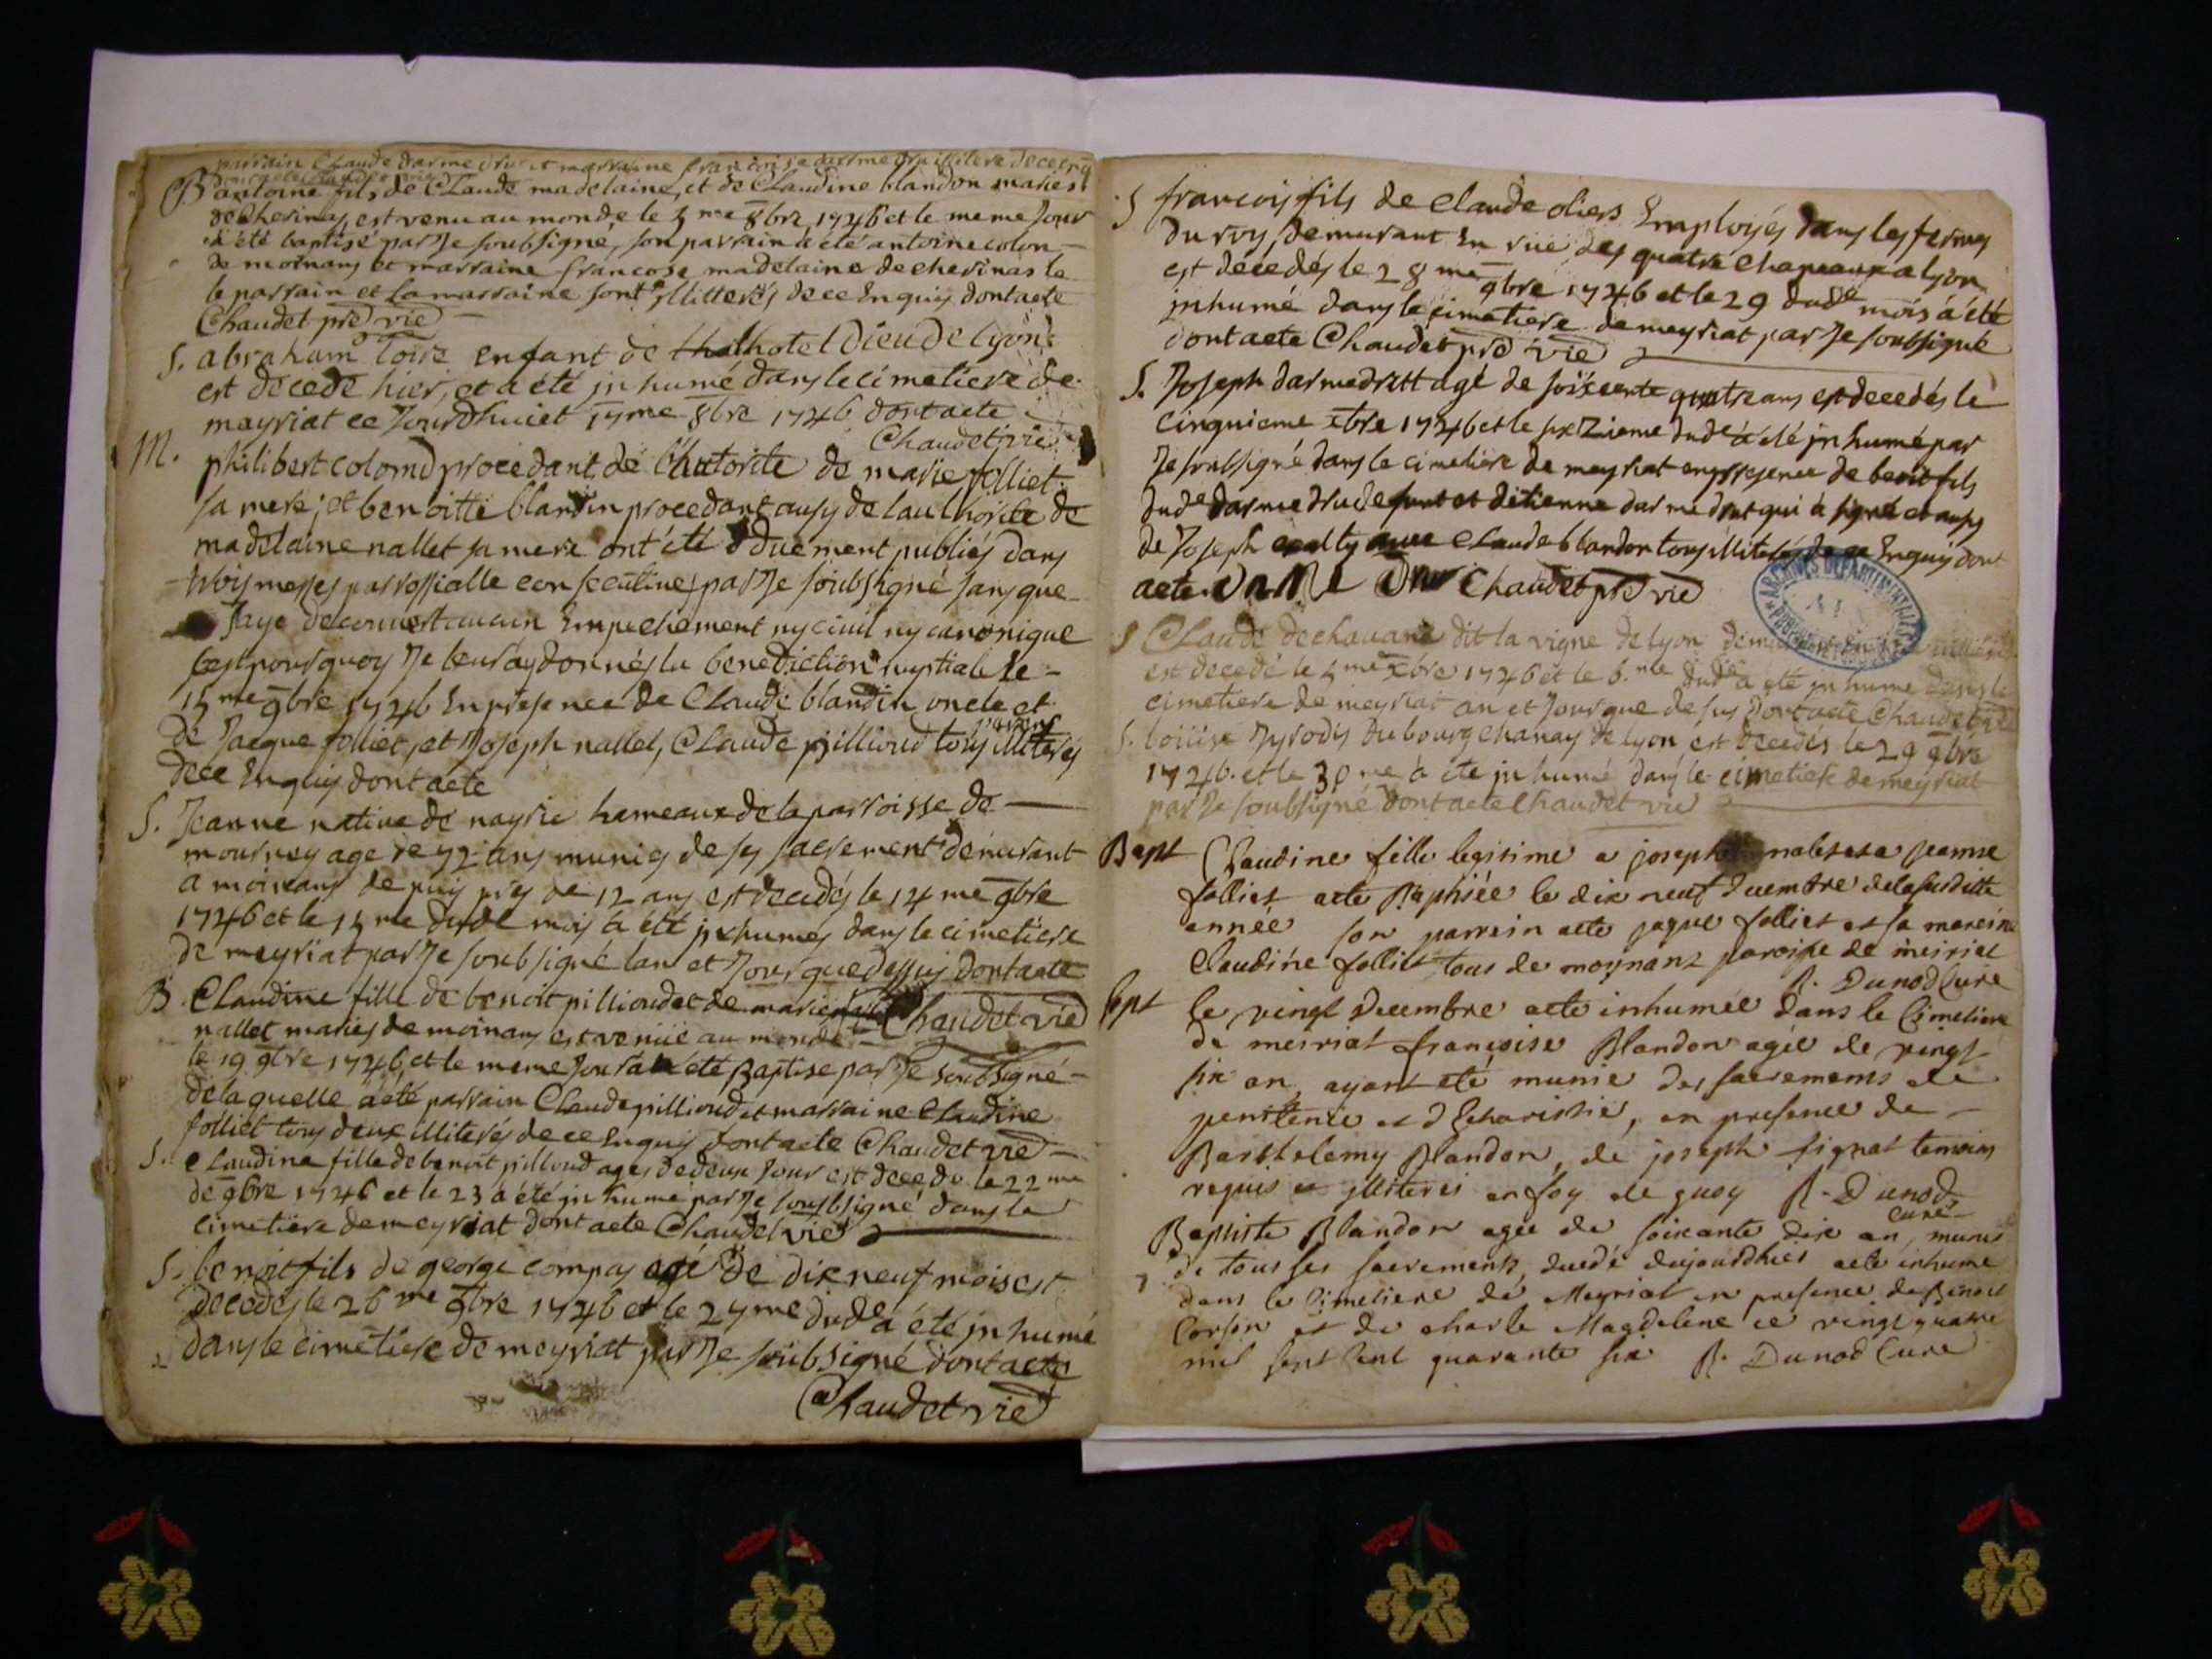 parrain Claude darme dru et marraine francoise darme dru illitere de ce enquis
B antoine fils de Claude madelaine, et de Claudine blandon mariés
de cherinas, est venu au monde le 5me 8bre 1746 et le meme Jour
a été baptisé par Je soubsigné, son parrain a été antoine colon –
de moinans et marraine francose madelaine de cherinas le
le parrain et la marraine sont illitterés de ce Enquis dont acte
Chaudet pre vie
S. abraham loire enfant de thal hotel Dieu de lyon
est decede hier, et a été jnhumé dans le cimetiere de
mayriat ce Jourdhuiet 17me 8bre 1746 dont acte
Chaudet vie
M. philibert colomd procedant de l'hutorite de marie folliet
sa mere; et benoitte blandin procedant ausy de lauthorite de
madelaine nallet sa mere ont été duement publiés dans
trois messes parrossialle consecutives par Je soubsigné sans que
Jaye decouvert aucun Empechement ny ciuil ny canonique
cest pourquoy Je leur ay donnés la benediction nuptiale le –
15me 9bre 1746 En presence de Claude blandin oncle et
parens
de Jacque folliet, et Joseph nallet, Claude pillioud tous illiterés
de ce Enquis dont acte
S. Jeanne native de nayrie hameaux de la parroisse de
mournay age de 72 ans munies de ses sacrement demurant
a moinans depuis pres de 12 ans est decedés le 14me 9bre
1746 et le 15me dude mois a été jnhumés dans le cimetiere
de meyriat par Je soubsigné lan et Jour que dessus dont acte
Chaudet vie
B Claudine fille de benoit pillioudet de marie
nallet mariés de moinans est venüe au monde –
le 19 9bre 1746, et le meme Jour a été Baptise par Je soubsigné –
de laquelle a été parrain Claude pillioud et marraine Claudine
folliet tous deux illiterés de ce Enquis dont acte Chaudet vie –
S. Claudine fille de benoit pilloud ages de deux Jour est decede le 22me
de 9bre 1746 et le 23 a été jnhume par Je soubsigné dans le
cimetiere de meyriat dont acte Chaudet vie
S. benoit fils de george compas agé de dix neuf mois est
decedés le 26me 9bre 1746 et le 27me dude a été jnhumé
dans le cimetiere de meyriat par Je soubsigné dont acte
Chaudet vie
S francois fils de Claude oliers Employés dans les fermes
du roy, demurant En rüe des quatre chapeaux a lyon
est décedés le 28me 9bre 1746 et le 29 dude mois a été
jnhumé dans le cimetiere de meyriat par Je soubsigné
dont acte Chaudet pre vie
S. Joseph darmedrutt agé de soixente quatre ans est decedés le
cinquieme xbre 1746 et le sixzieme dude a été jnhumé par
Je soubsigné dans le cimetiere de meyriat en presence de benoit fils
dude darme dru defunt et d'etienne darme drut qui a signé et ausy
de Joseph Claude blandon tous illiterés de ce Enquis dont
acte. Chaudet pre vie
S Claude dechavane dit la vigne de lyon
est decedé le 5me xbre 1746 et le 6.me dude a été jnhume dans le
cimetiere de meyriat an et Jour que desus dont acte Chaudet vie
S. loüise Jyrodis du bourg chanay de lyon est decedés le 29 9bre
1746. et le 30me a été jnhumé dans le cimetiere de meyriat
par Je soubsigné dont acte Chaudet vie
ARCHIVES DÉPARTEMENTALES
Bapt Claudine fille legitime a joseph nalet et a jeanne
folliet aete Baptisée le dix neuf decembre de la susditte
année son parrein aete jaque folliet et sa mareine
Claudine folliet tous de moynans paroisse de meiriat
R. Dunod Curé
Sept le vingt decembre aete inhumée dans le Cimetiere
de meiriat françoise Blandon agée de vingt
six an, ayant eté munie des sacremens de
penitence et d'Eucharistie, en presence de –
Barthelemy Blandon, de joseph fignat temoins
requis et jlliteres en foy de quoy R. Dunod
curé
Baptiste Blandon agée de soixante dix an, munit
de tous ses sacrements, decedé dujourdhier aete inhume
dans le Cimetiere de Meyriat en presence de Benoit
Corsin et de charle Magdelene ce vingt quatre
mil sept cent quarante six R. Dunod Curé